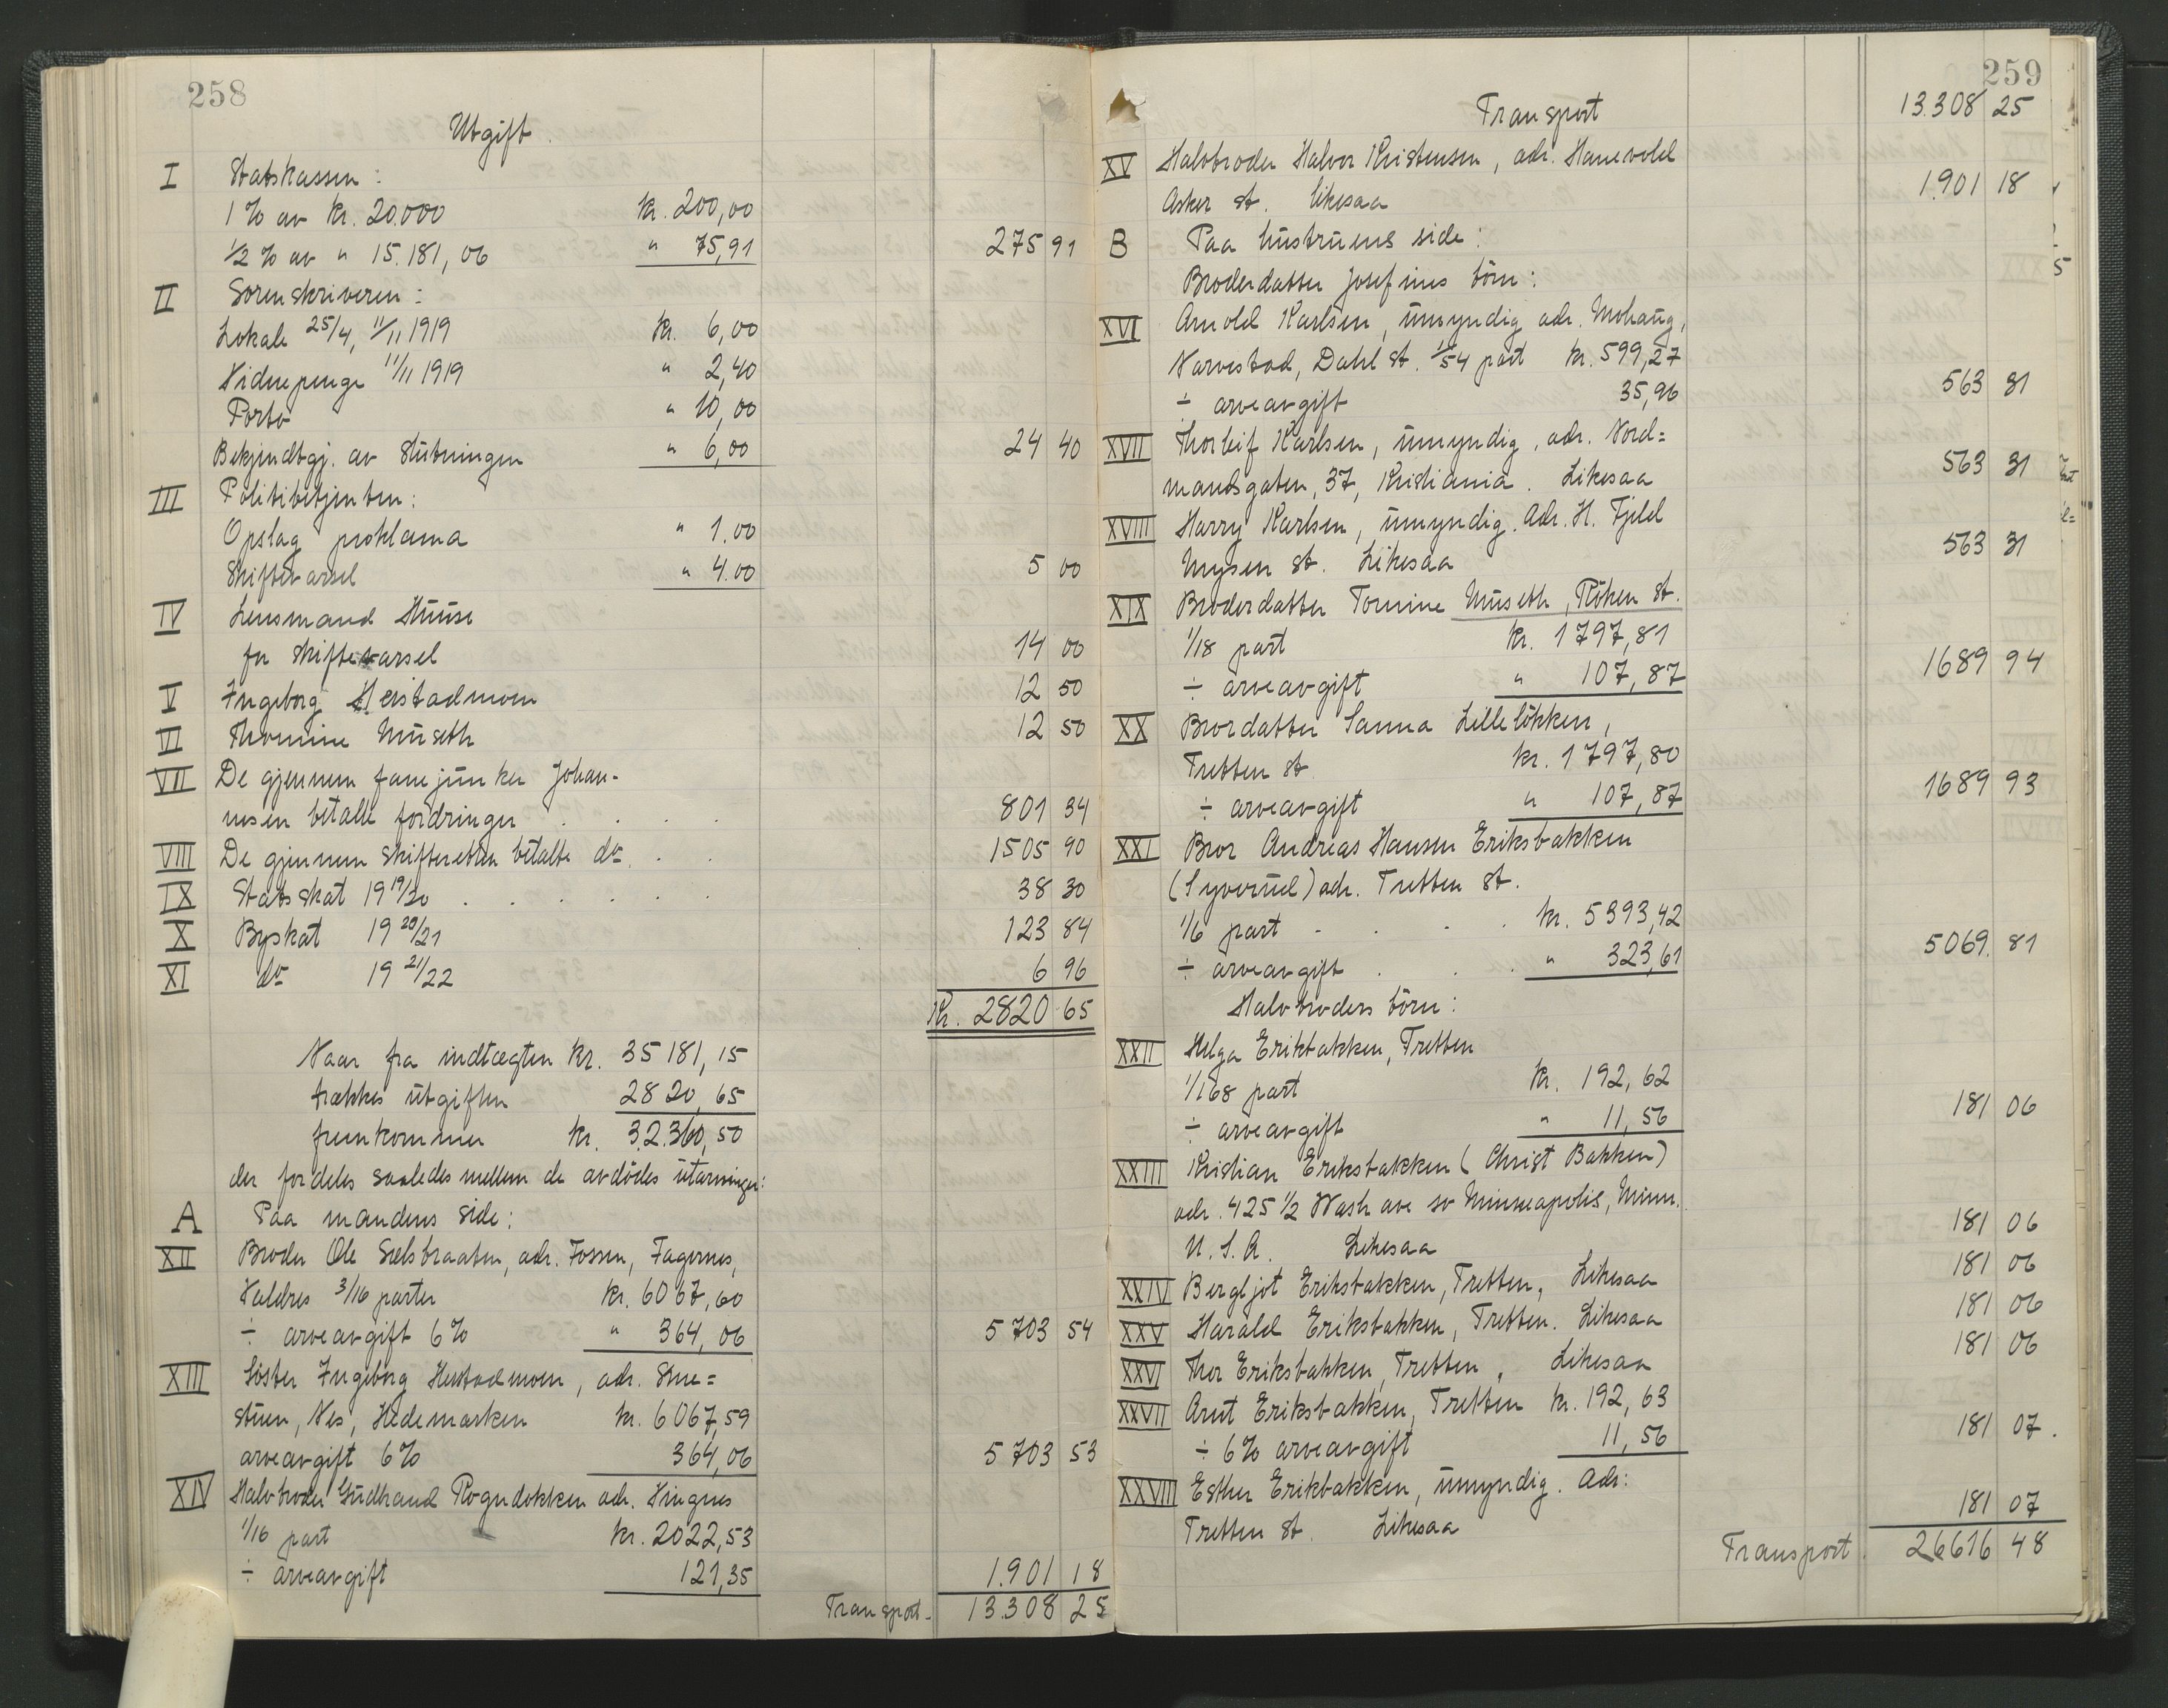 258
Utgift.
I Statskassen:
1 % av kr. 20.000 kr. 200,00
½ % av " 15.181,06 " 75,91 275 91
II Sorenskriveren:
Lokale 25/4, 11/11 1919 kr. 6,00
Vidnepenge 11/11 1919 " 2,40
Porto " 10,00
Bekjendtgj. av slutningen " 6,00 24 40
III Politibetjenten:
Opslag proklama " 1.00
Skiftevarsel " 4.00 5 00
IV Lensmand
for skiftevarsel 14 00
V Ingeborg Herstadmoen 12 50
VI Thomine Museth 12 50
VII De gjennem fanejunker Johan-
nesen betalte fordringer . . . . 801 34
VIII De gjennem skifteretten betalte do . . 1505 90
IX Statsskat 19 19/20 . . . . . . 38 30
X Byskat 19 20/21 123 84
XI do 19 21/22 6 96
Kr. 2820 65
Naar fra indtægten kr. 35 181,15
trækkes utgiften 2820,65
fremkommer kr. 32.360,50
der fordeles saaledes mellem de avdødes utarvinger:
A Paa mandens side:
XII Broder Ole Sælsbraaten, adr. Fossen, Fagernes,
Valdres 3/16 parter kr. 6067,60
÷ arveavgift 6 % " 364,06 5 703 54
XIII Søster Ingeborg Herstadmoen, adr. Stue=
stuen, Nes, Hedemarken kr. 6067,59
arveavgift 6 % 364,06 5 703 53
XIV Halvbroder Gudbrand Rogndokken adr. Vingnes
1/16 part kr. 2022,53
÷ arveavgift 121,35 1.901 18
Transport- 13.308 25
259
Transport 13.308 25
XV Halvbroder Halvor Kristensen, adr. Hanevold
Asker st. likesaa 1901 18
B Paa hustruens side:
Broderdatter Josefines børn:
XVI Arnold Karlsen, umyndig adr. Mohaug,
Narvestad, Dahl st. 1/54 part kr. 599,27
÷ arveavgift 35,96 563 31
XVII Thorleif Karlsen, umyndig, adr. Nord=
mandsgaten, 37, Kristiania. Likesaa 563 31
XVIII Harry Karlsen, umyndig. Adr. H. Fjeld
Mysen st. Likesaa 563 31
XIX Broderdatter Tomine Museth, Røken st.
1/18 part kr. 1797,81
÷ arveavgift " 107,87 1689 94
XX Brordatter Sanna Lilleløkken,
Tretten st. kr. 1797,80
÷ arveavgift " 107,87 1689 93
XXI Bror Andreas Hansen Eriksbakken
(Syverud) adr. Tretten st.
1/6 part . . . . kr. 5393,42
÷ arveavgift . . . " 323,61 5069. 81
Halvbroders børn:
XXII Helga Erikbakken, Tretten
1/168 part kr. 192,62
÷ arveavgift " 11,56 181 06
XXIII Kristian Eriksbakken (Christ Bakken)
adr. 425 1/2 Wash ave so Minneapolis, Minn.
U. S. A. Likesaa 181 06
XXIV Bergljot Eriksbakken, Tretten, Likesaa 181 06
XXV Harald Eriksbakken, Tretten. Likesaa 181 06
XXVI Thor Eriksbakken, Tretten, Likesaa 181 06
XXVII Arnt Eriksbakken, Tretten kr. 192,63
÷ 6% arveavgift 11,56 181 07.
XXVIII Esther Erikbakken, umyndig. Adr:
Tretten st. Likesaa 181 07
Transport. 26616 48